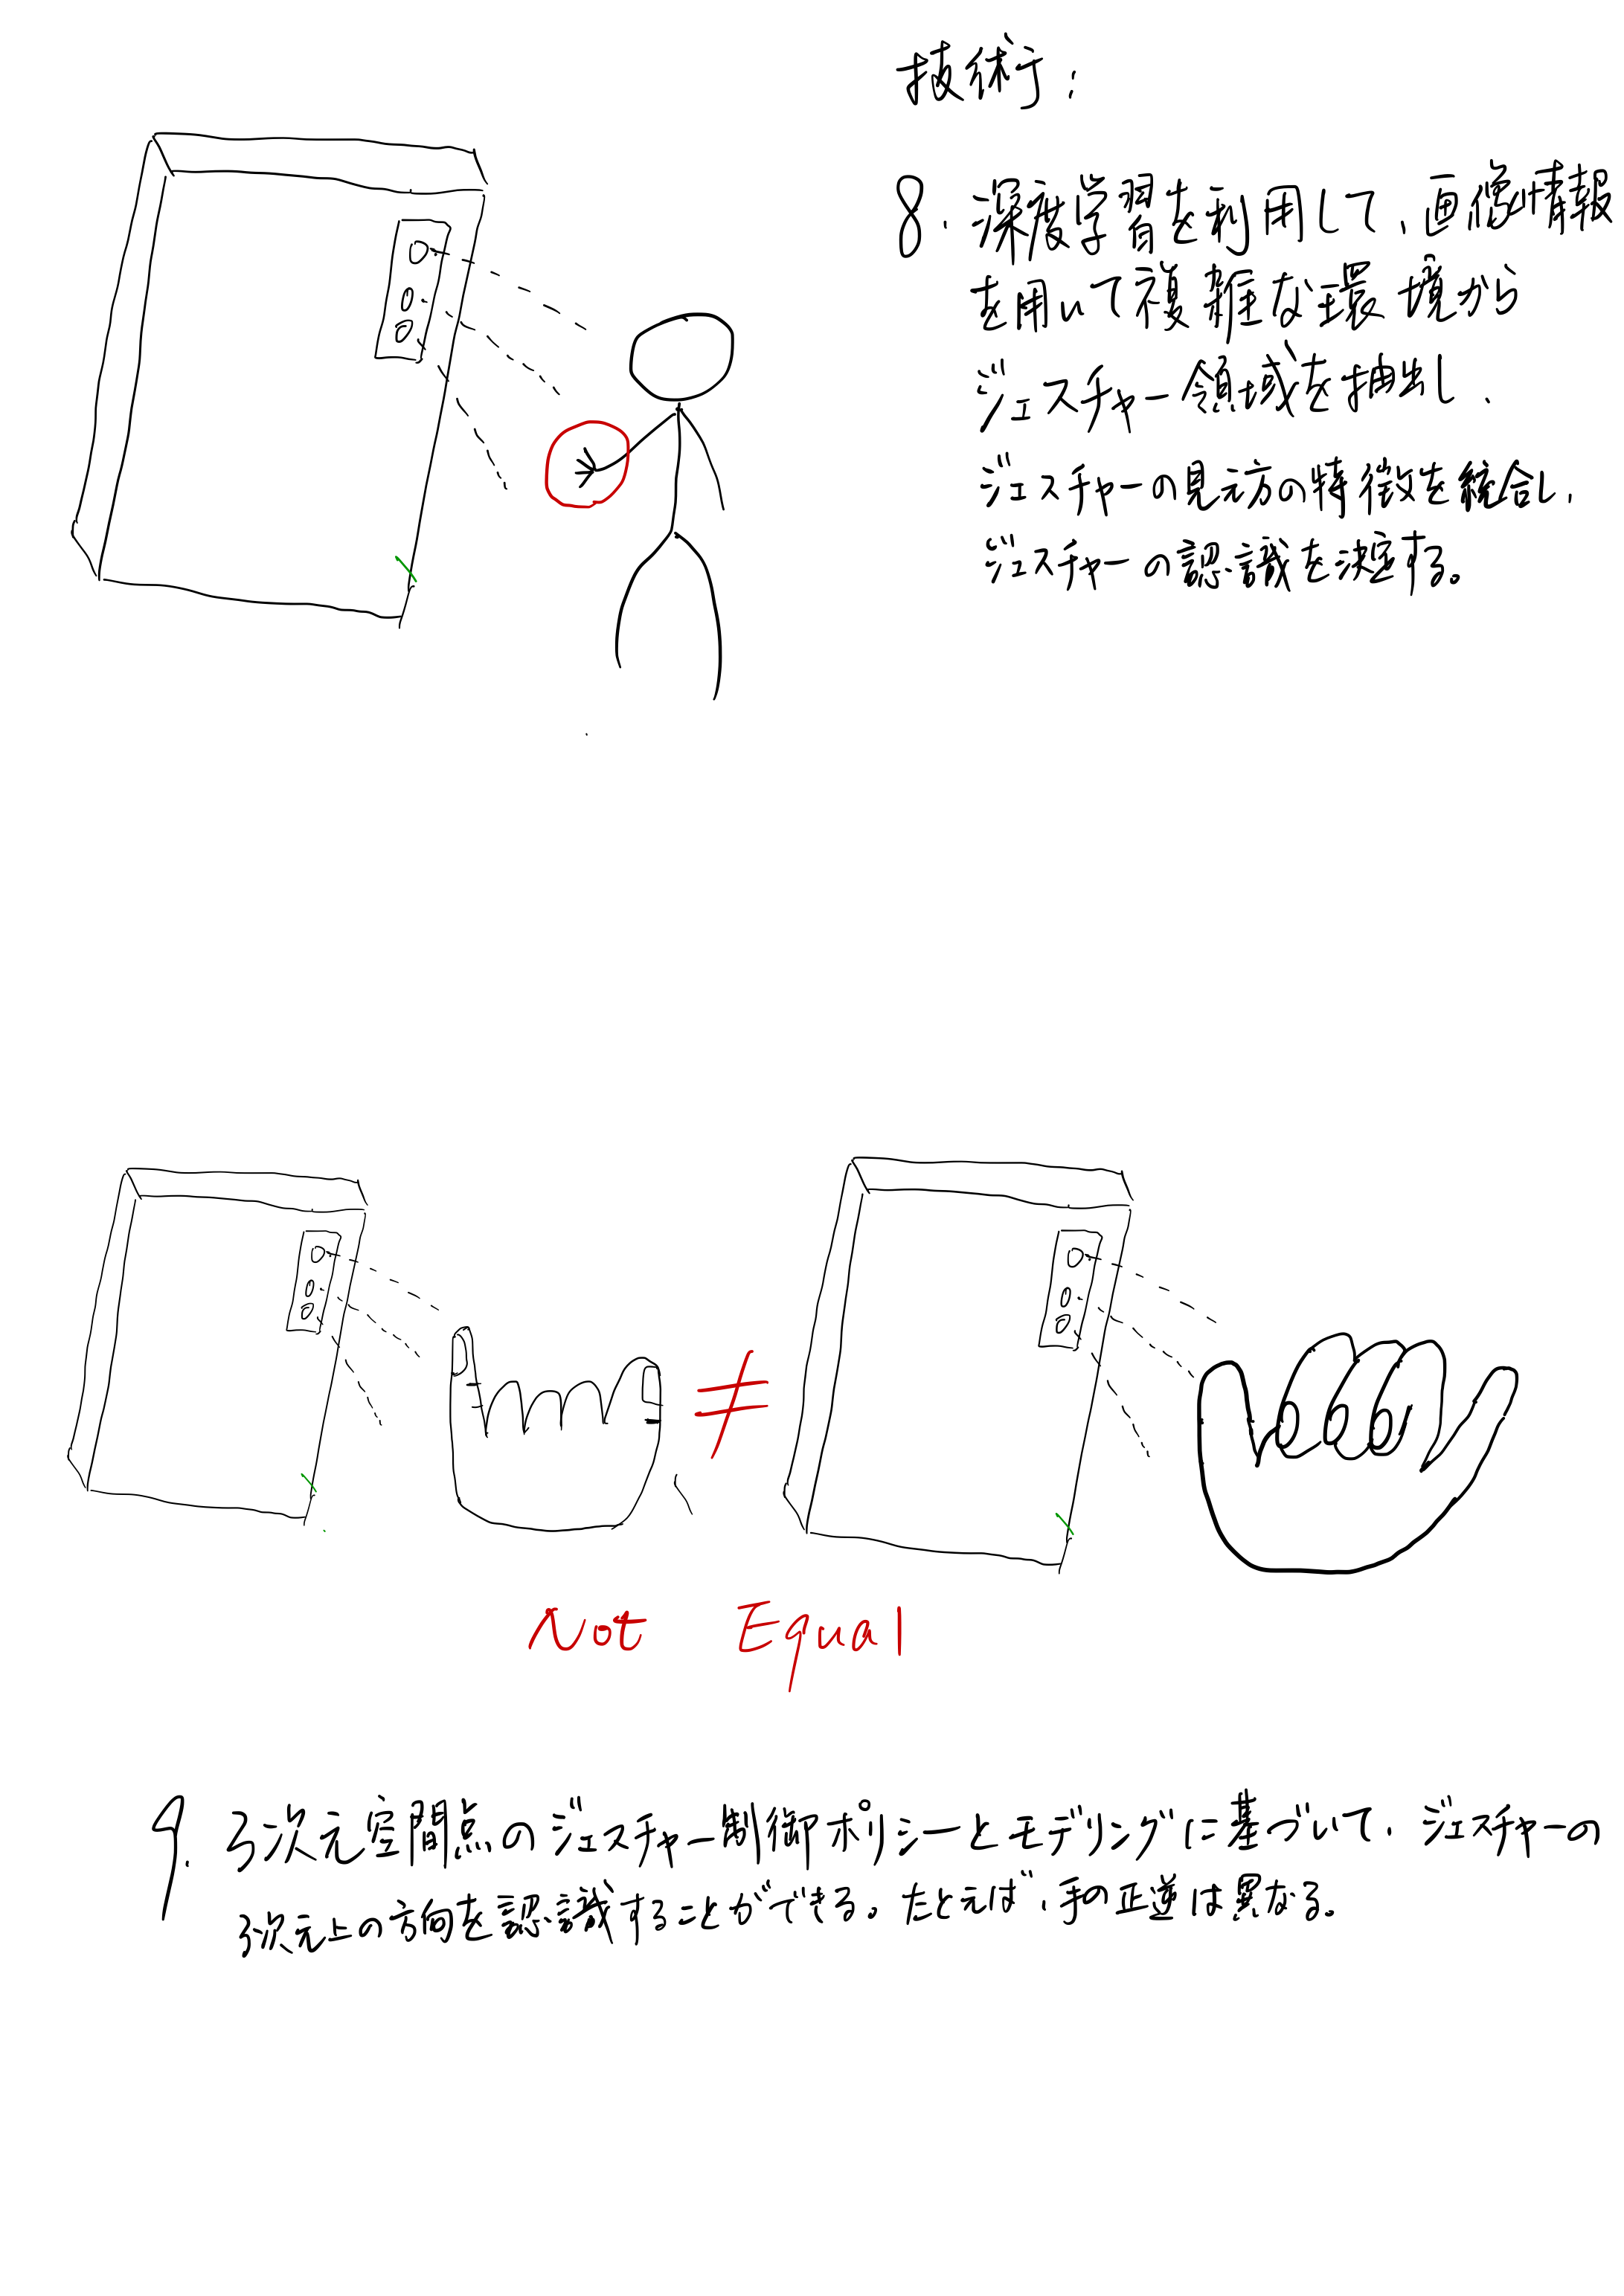 技術:
8. 深度学習を利用して、画像情報
を用いて複雑な環境から
ジェスチャー領域を抽出し、
ジェスチャーの見え方の特徴を統合し、
ジェスチャーの認識を決定する。
≠
Not Equal
9. 3次元空間点のジェスチャー制御ポリシーとモデリングに基づいて、ジェスチャーの
3次元上の方向を認識することができる。たとえば、手の正逆は異なる。